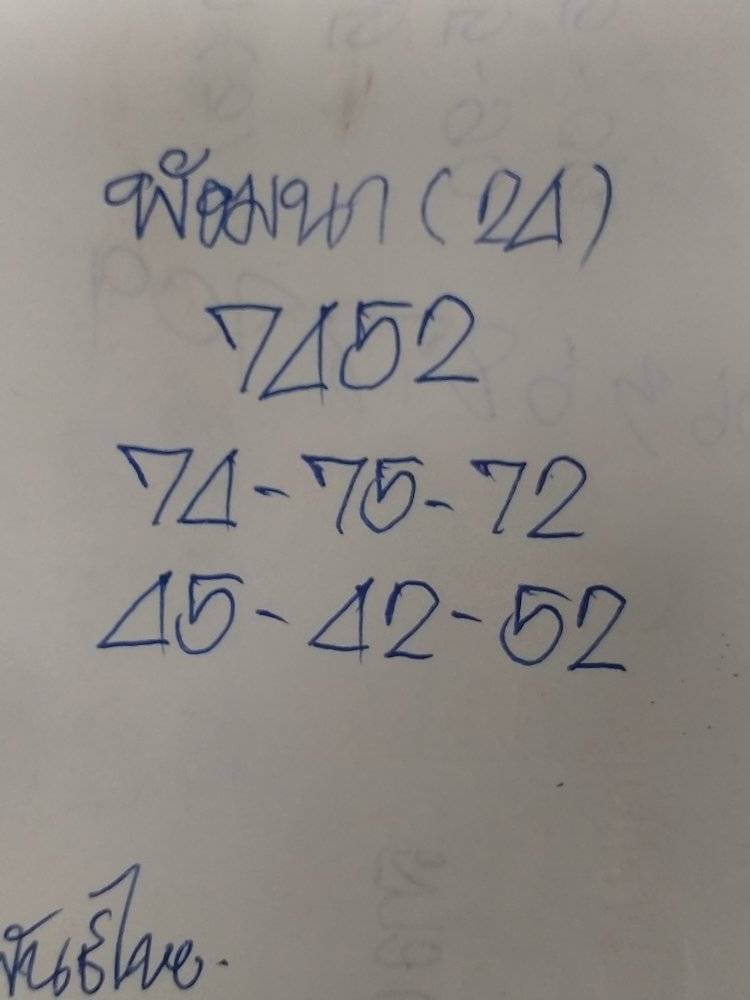 พัฒนา (24)
7452
74-75-72
45-42-52